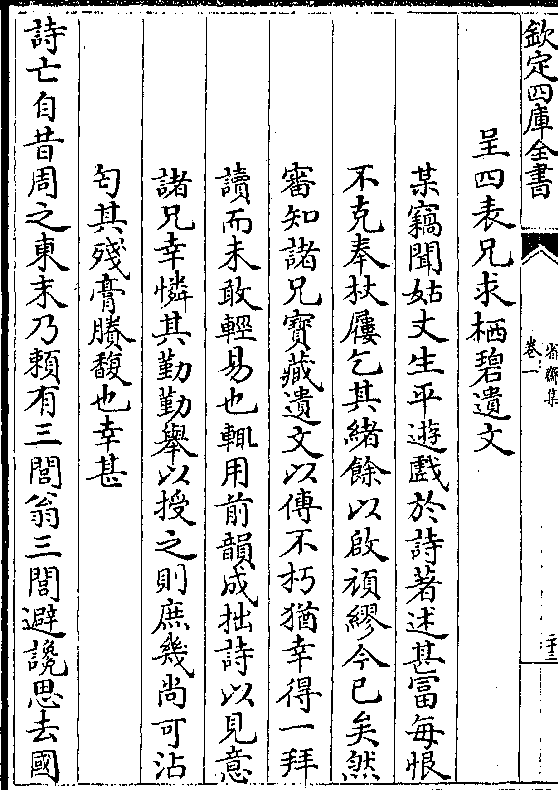 欽定四庫全書
卷一
二十三
呈四表兄求栖碧遺文
某竊聞姑丈生平遊戲於詩著述甚富每恨
不克奉杖屨乞其緒餘以啟頑繆今已矣然
審知諸兄寶藏遺文以傳不朽猶幸得一拜
讀而未敢輕易也輒用前韻成拙詩以見意
諸兄幸憐其勤勤舉以授之則庶幾尚可沾
匄其殘膏賸馥也幸甚
詩亡自昔周之東末乃頼有三閭翁三閭避讒思去國